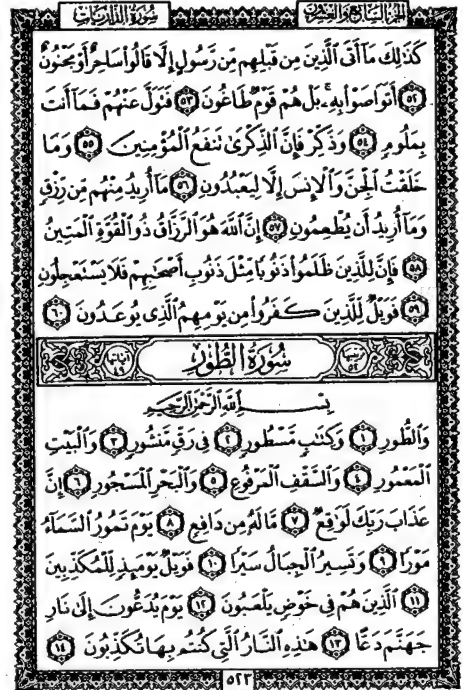 سُورَةُ الذَّارِيَاتِ
الجزء السابع والعشرون
كَذَٰلِكَ مَآ أَتَى ٱلَّذِينَ مِن قَبْلِهِم مِّن رَّسُولٍ إِلَّا قَالُوا۟ سَاحِرٌ أَوْ مَجْنُونٌ
٥٢ أَتَوَاصَوْا۟ بِهِۦ ۚ بَلْ هُمْ قَوْمٌ طَاغُونَ ٥٣ فَتَوَلَّ عَنْهُمْ فَمَآ أَنتَ
بِمَلُومٍ ٥٤ وَذَكِّرْ فَإِنَّ ٱلذِّكْرَىٰ تَنفَعُ ٱلْمُؤْمِنِينَ ٥٥ وَمَا
خَلَقْتُ ٱلْجِنَّ وَٱلْإِنسَ إِلَّا لِيَعْبُدُونِ ٥٦ مَآ أُرِيدُ مِنْهُم مِّن رِّزْقٍ
وَمَآ أُرِيدُ أَن يُطْعِمُونِ ٥٧ إِنَّ ٱللَّهَ هُوَ ٱلرَّزَّاقُ ذُو ٱلْقُوَّةِ ٱلْمَتِينُ
٥٨ فَإِنَّ لِلَّذِينَ ظَلَمُوا۟ ذَنُوبًا مِّثْلَ ذَنُوبِ أَصْحَٰبِهِمْ فَلَا يَسْتَعْجِلُونِ
٥٩ فَوَيْلٌ لِّلَّذِينَ كَفَرُوا۟ مِن يَوْمِهِمُ ٱلَّذِى يُوعَدُونَ ٦٠
ترتيبها ٥٢ سُورَةُ الطُّورِ آياتها ٤٩
بِسْمِ ٱللَّهِ ٱلرَّحْمَٰنِ ٱلرَّحِيمِ
وَٱلطُّورِ ١ وَكِتَٰبٍ مَّسْطُورٍ ٢ فِى رَقٍّ مَّنشُورٍ ٣ وَٱلْبَيْتِ
ٱلْمَعْمُورِ ٤ وَٱلسَّقْفِ ٱلْمَرْفُوعِ ٥ وَٱلْبَحْرِ ٱلْمَسْجُورِ ٦ إِنَّ
عَذَابَ رَبِّكَ لَوَٰقِعٌ ٧ مَّا لَهُۥ مِن دَافِعٍ ٨ يَوْمَ تَمُورُ ٱلسَّمَآءُ
مَوْرًا ٩ وَتَسِيرُ ٱلْجِبَالُ سَيْرًا ١٠ فَوَيْلٌ يَوْمَئِذٍ لِّلْمُكَذِّبِينَ
١١ ٱلَّذِينَ هُمْ فِى خَوْضٍ يَلْعَبُونَ ١٢ يَوْمَ يُدَعُّونَ إِلَىٰ نَارِ
جَهَنَّمَ دَعًّا ١٣ هَٰذِهِ ٱلنَّارُ ٱلَّتِى كُنتُم بِهَا تُكَذِّبُونَ ١٤
٥٢٣